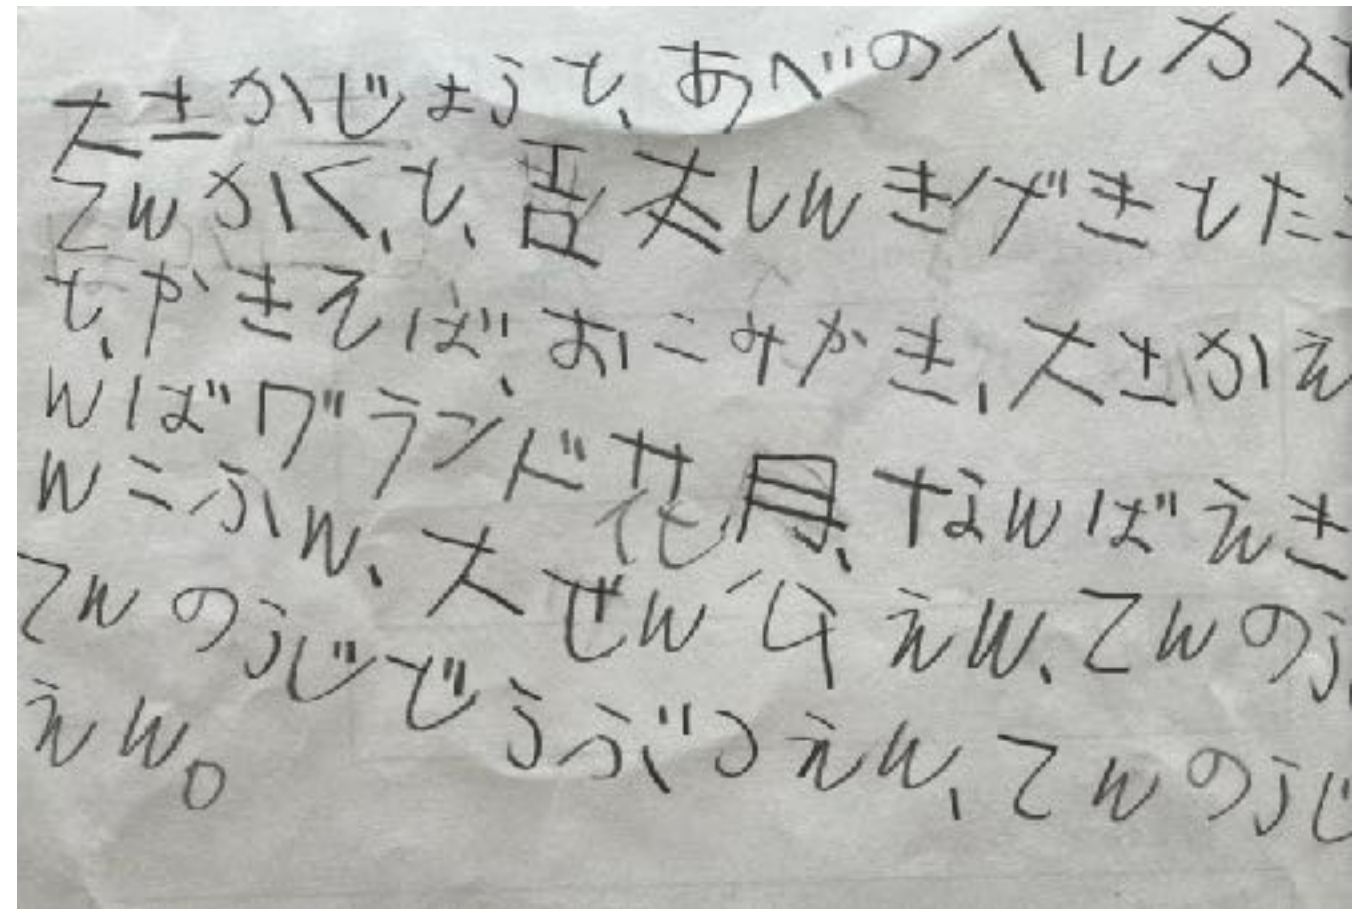 大さかじょうと、あべのハルカス
てんかくと、吾本しんきげきとた
と、やきそば、おこみやき、大さかえ
んばグランド花月、なんばえき
んこふん、大ぜんyえん、てんのう
てんのうじどうぶつえん、てんのうじ
えん。